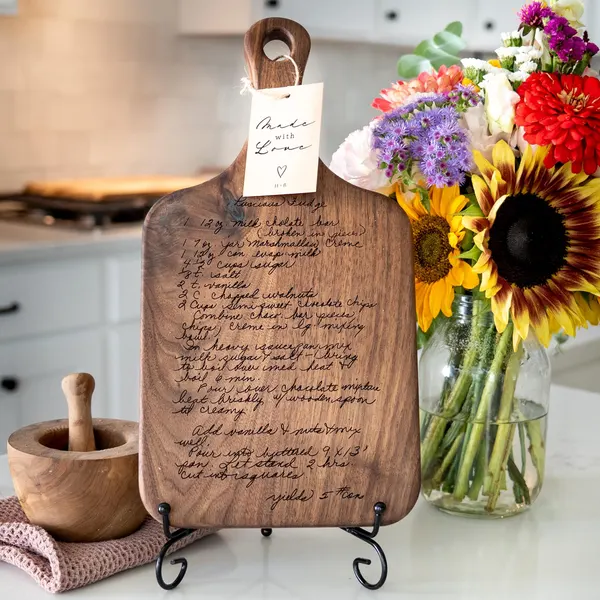 Made
with
Love
Luscious Fudge
1 12 oz milk cholate bar
(broken in pieces)
1 7 oz jar Marshmallow Creme
1 12 oz can evap milk
4 ½ cups sugar
t. salt
2 t. vanilla
2 C chopped walnuts
2 Cups semi-sweet chocolate chips
Combine choc. bar pieces,
chips, creme in lg mixing
bowl.
In heavy saucepan mix
milk sugar & salt - bring
to boil over med heat &
boil 6 min.
Pour over chocolate mixture
beat briskly w/ wooden spoon
til creamy.
Add vanilla & nuts & mix
well.
Pour into buttered 9 x 13"
pan. Let stand 2 hrs.
Cut into squares
yields 5 #